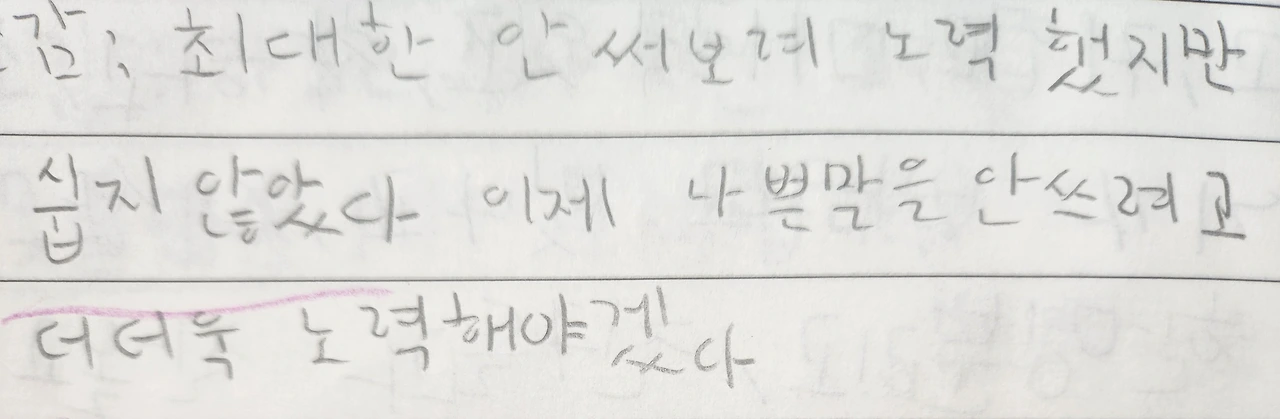 감; 최대한 안 써보려 노력 했지만
쉽지 않았다 이제 나쁜말을 안쓰려고
더더욱 노력해야겠다